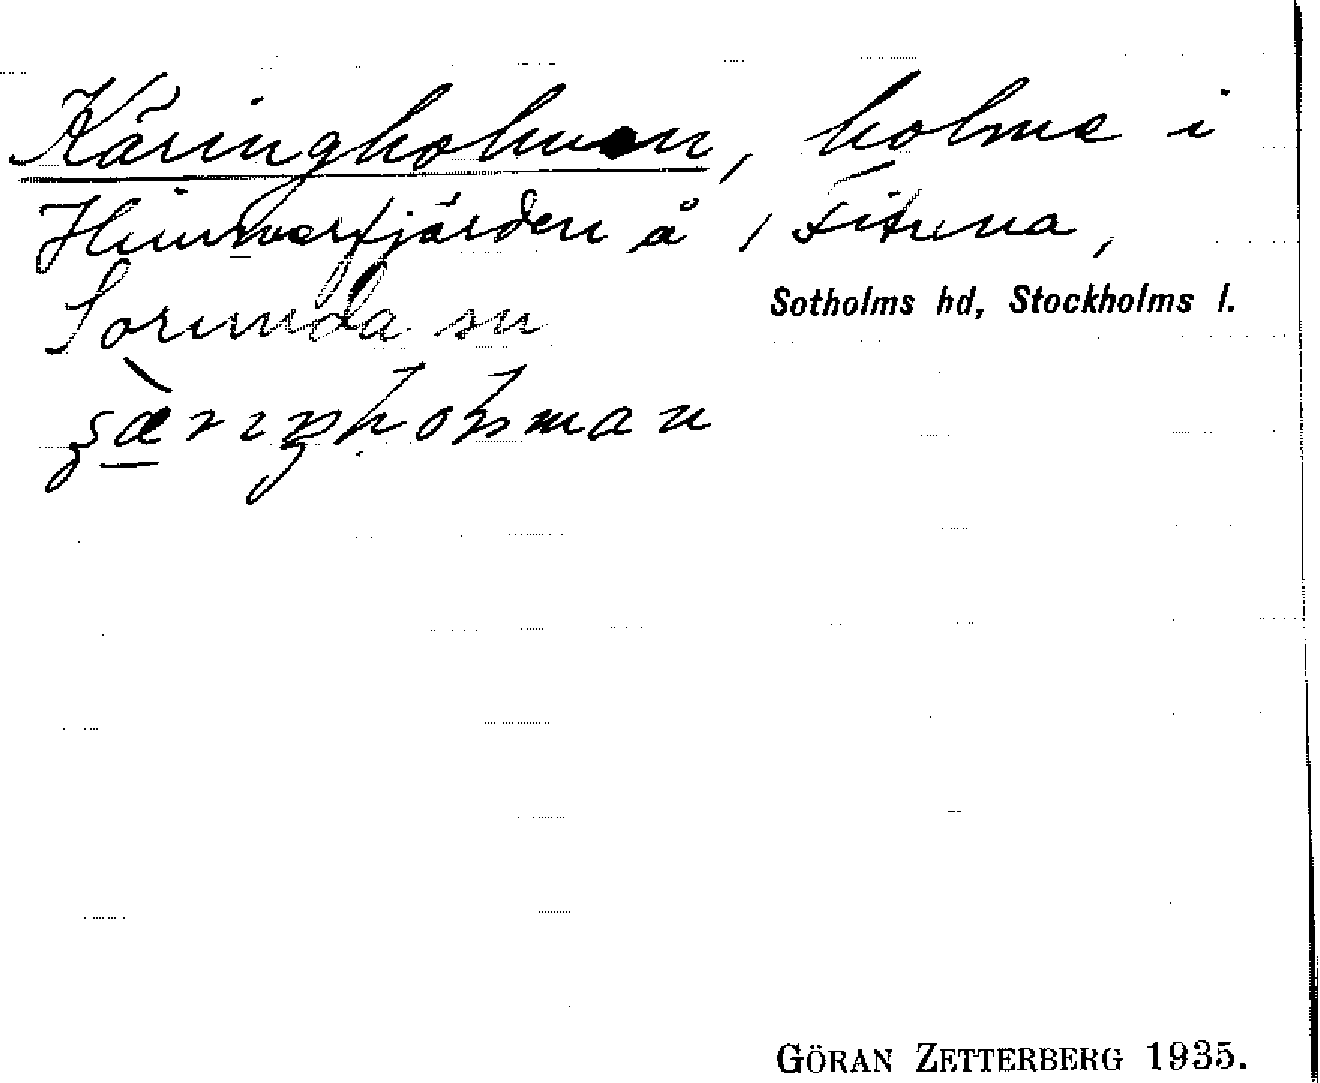 Käringholmen, holme i
Himmerfjärden å / Fituna,
Sorunda sn
Sotholms hd, Stockholms l.
GÖRAN ZETTERBERG 1935.